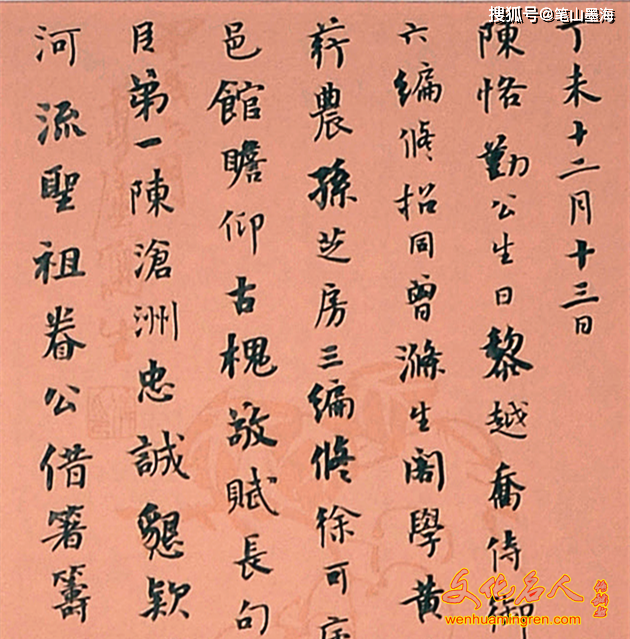 搜狐号@笔山墨海
丁未十二月十三日
陳恪勤公生日黎越喬侍御
六編脩招同曾滌生閣學黃
農孫芝房三編脩徐可
邑館瞻仰古槐敬賦長句
目第一陳滄洲忠誠懇款
河流聖祖眷公借箸籌
文化名人
wenhuamingren.com